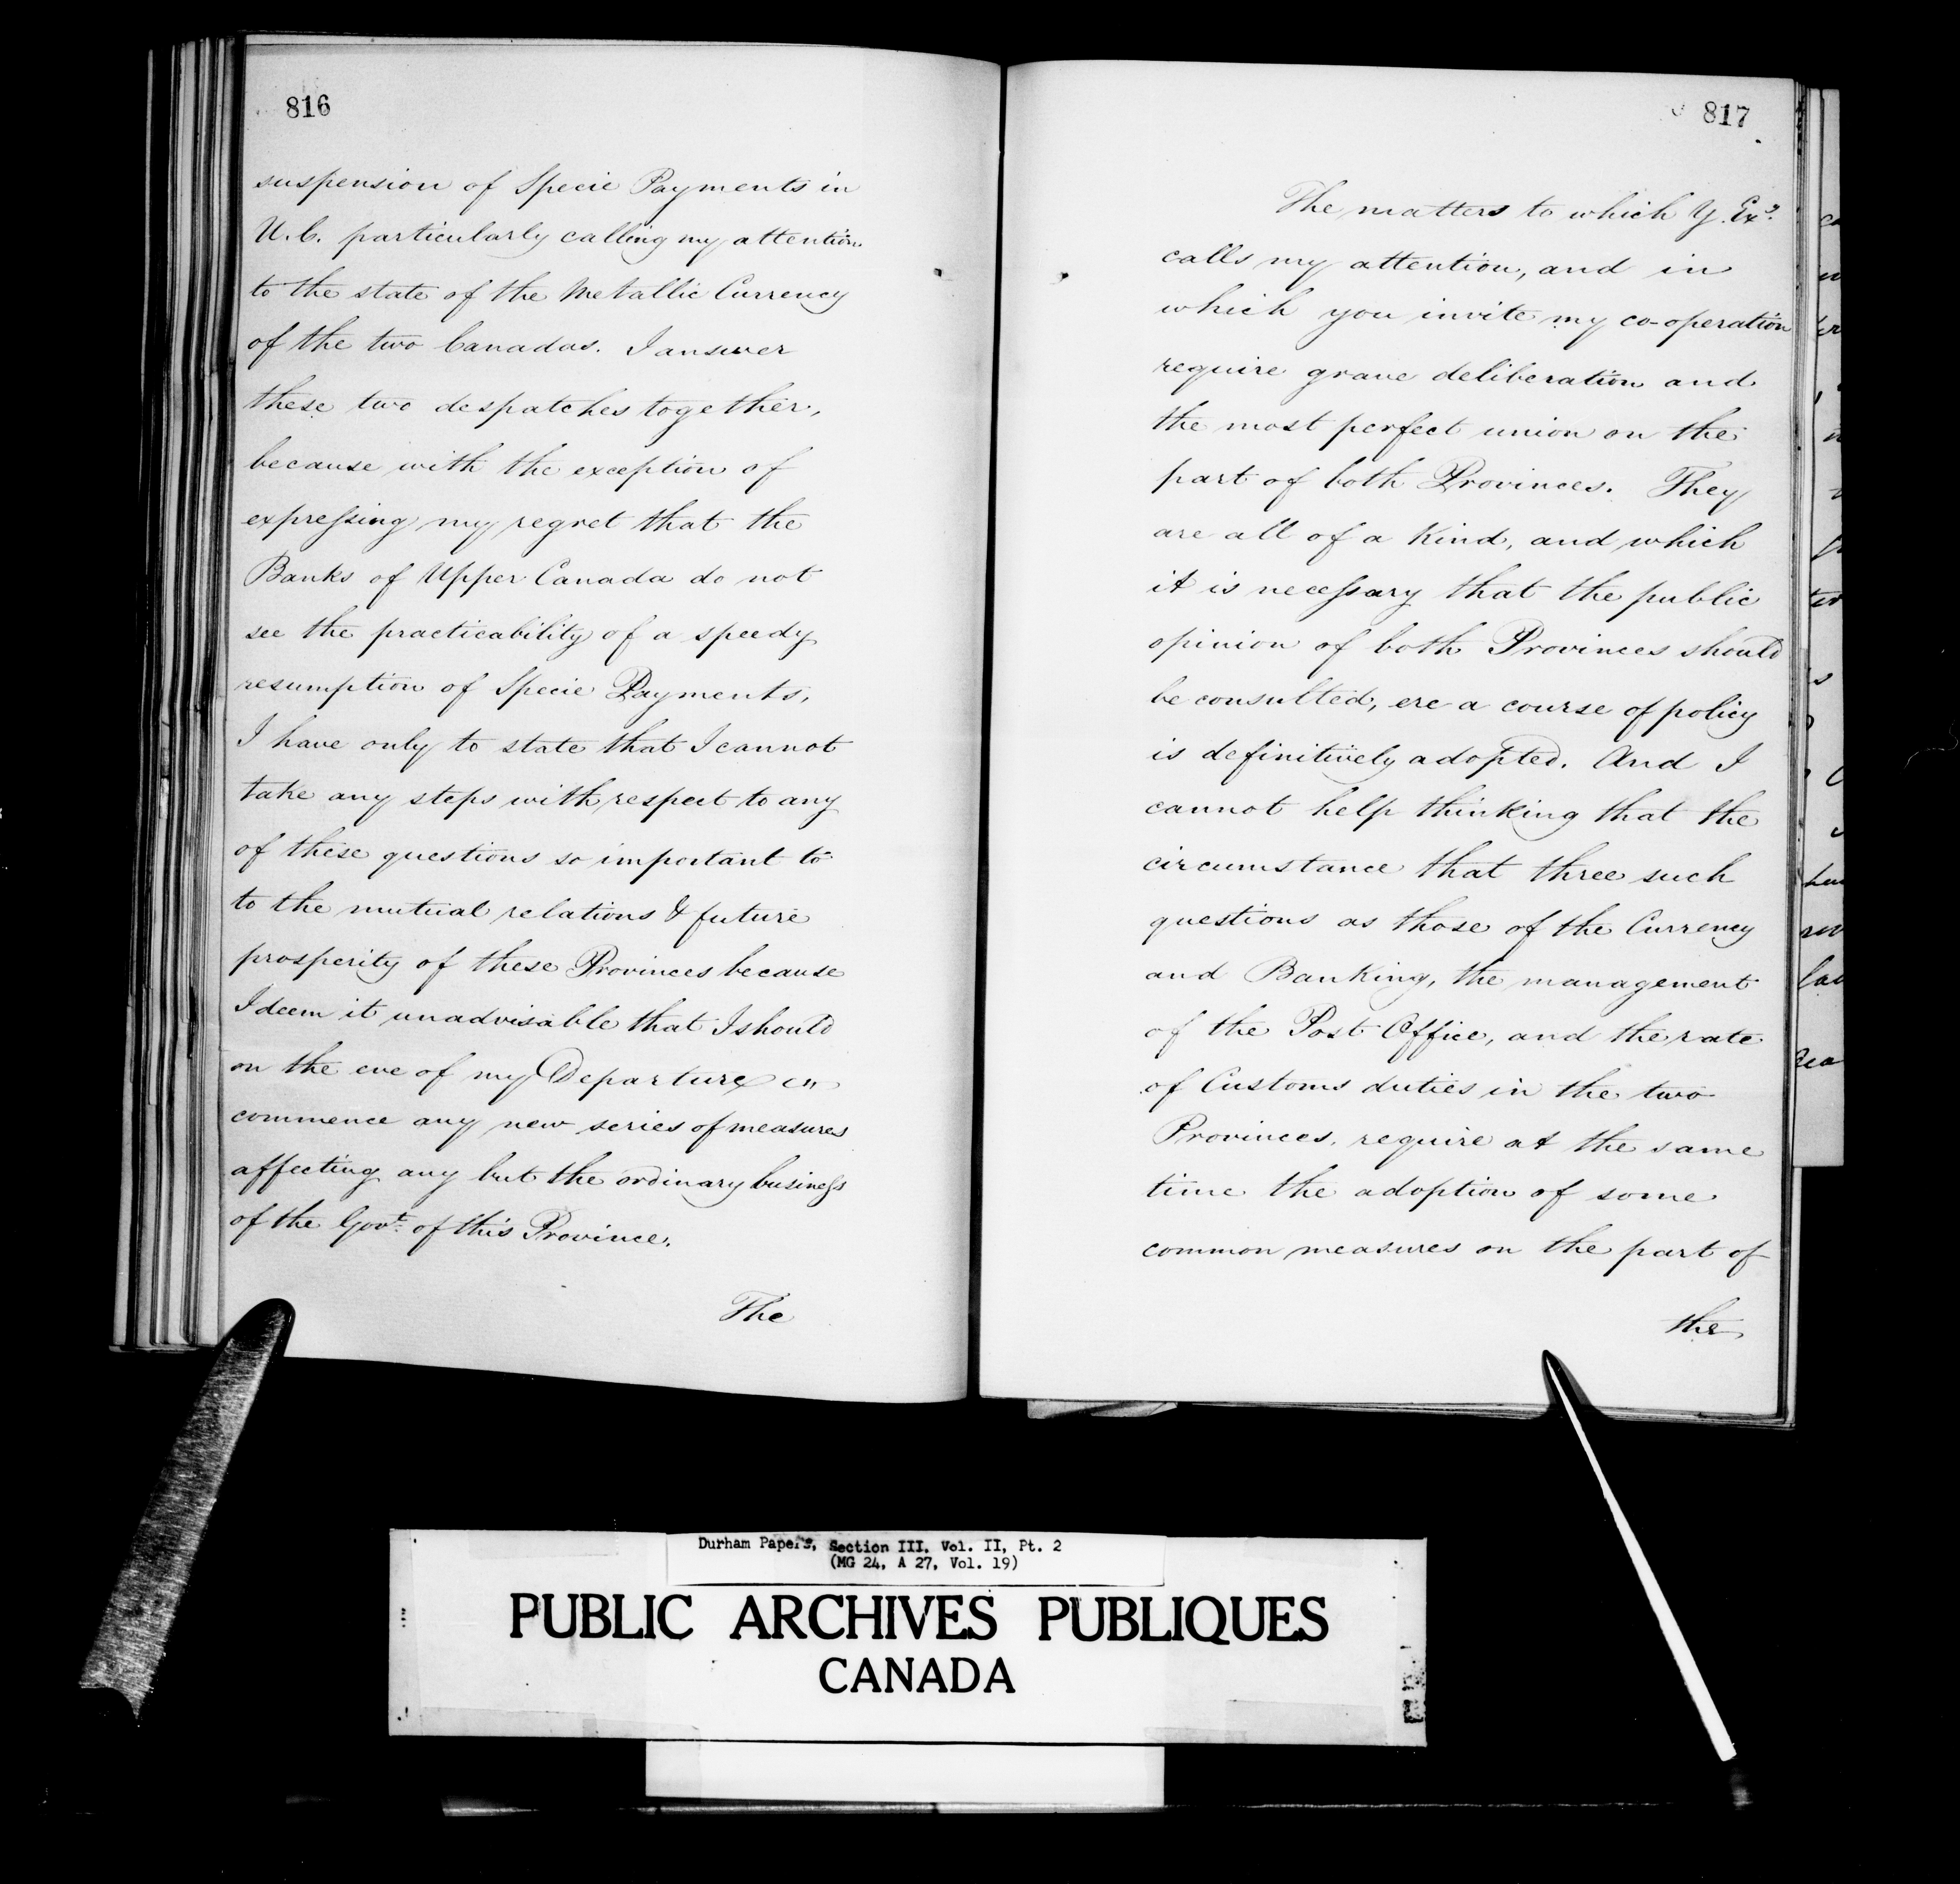 816
suspension of Specie Payments in
U.C. particularly calling my attention
to the state of the Metallic Currency
of the two Canadas. I answer
these two despatches together,
because with the exception of
expressing my regret that the
Banks of Upper Canada do not
see the practicability of a speedy
resumption of Specie Payments,
I have only to state that I cannot
take any steps with respect to any
of these questions so important to
to the mutual relations & future
prosperity of these Provinces because
I deem it unadvisable that I should
on the eve of my Departure
commence any new series of measures
affecting any but the ordinary business
of the Govt. of this Province.
The
817
The matters to which Y. Exy.
calls my attention, and in
which you invite my co-operation
require grave deliberation and
the most perfect union on the
part of both Provinces. They
are all of a Kind, and which
it is necessary that the public
opinion of both Provinces should
be consulted, ere a course of policy
is definitively adopted. And I
cannot help thinking that the
circumstance that three such
questions as those of the Currency
and Banking, the management
of the Post Office, and the rate
of Customs duties in the two
Provinces, require at the same
time the adoption of some
common measures on the part of
the
Durham Papers, Section III, Vol. II, Pt. 2
(MG 24, A 27, Vol. 19)
PUBLIC ARCHIVES PUBLIQUES
CANADA